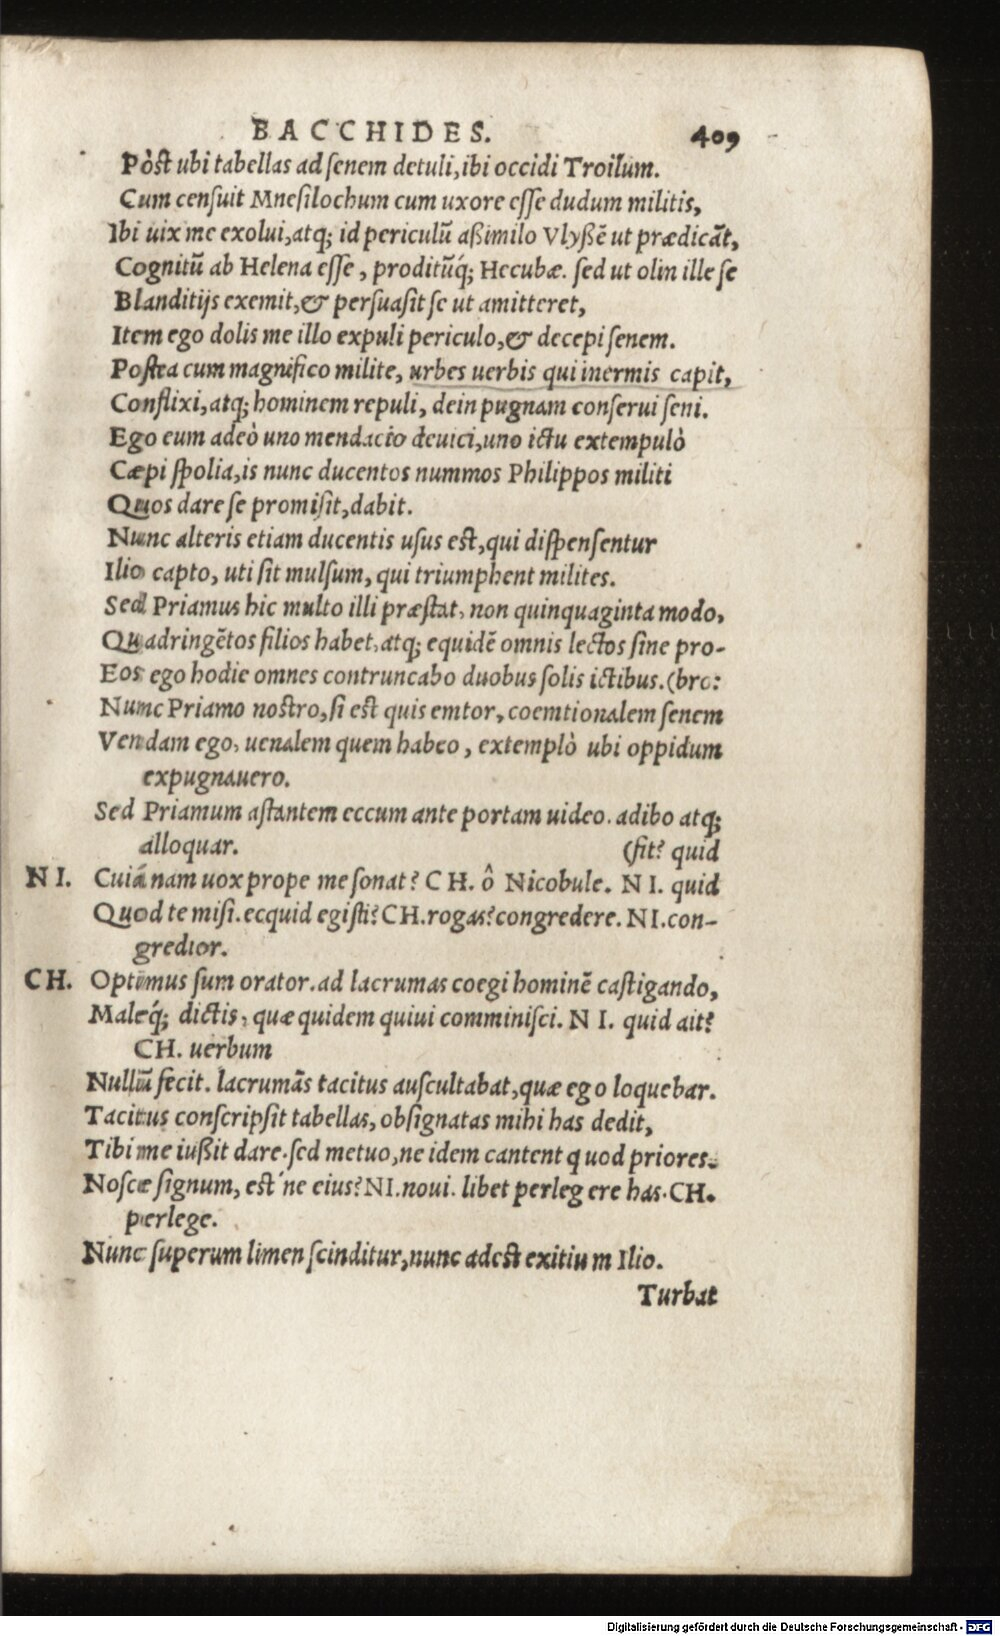 BACCHIDES. 409
Pòst ubi tabellas ad senem detuli, ibi occidi Troilum.
Cum censuit Mnesilochum cum uxore esse dudum militis,
Ibi uix me exolui, atq; id periculū aßimilo Vlyßē ut prædicāt,
Cognitū ab Helena esse, proditūq́; Hecubæ. sed ut olin ille se
Blanditijs exemit, & persuasit se ut amitteret,
Item ego dolis me illo expuli periculo, & decepi senem.
Postea cum magnifico milite, urbes uerbis qui inermis capit,
Conflixi, atq; hominem repuli, dein pugnam conserui seni.
Ego eum adeò uno mendacio deuici, uno ictu extempulò
Cæpi spolia, is nunc ducentos nummos Philippos militi
Quos dare se promisit, dabit.
Nunc alteris etiam ducentis usus est, qui dispensentur
Ilio capto, uti sit mulsum, qui triumphent milites.
Sed Priamus hic multo illi præstat, non quinquaginta modo,
Quadringētos filios habet, atq; equidē omnis lectos sine pro-
Eos ego hodie omnes contruncabo duobus solis ictibus. (bro:
Nunc Priamo nostro, si est quis emtor, coemtionalem senem
Vendam ego, uenalem quem habeo, extemplò ubi oppidum
expugnauero.
Sed Priamum astantem eccum ante portam uideo. adibo atq;
alloquar. (fit? quid
NI. Cuiánam uox prope me sonat? CH. ô Nicobule. NI. quid
Quod te misi. ecquid egisti? CH. rogas? congredere. NI. con-
gredior.
CH. Optimus sum orator. ad lacrumas coegi hominē castigando,
Maleq́; dictis, quæ quidem quiui comminisci. NI. quid ait?
CH. uerbum
Nullū fecit. lacrumās tacitus auscultabat, quæ ego loquebar.
Tacitus conscripsit tabellas, obsignatas mihi has dedit,
Tibi me iußit dare. sed metuo, ne idem cantent quod priores.
Noscæ signum, est'ne eius? NI. noui. libet perlegere has. CH.
perlege.
Nunc superum limen scinditur, nunc adest exitium Ilio.
Turbat
Digitalisierung gefördert durch die Deutsche Forschungsgemeinschaft - DFG